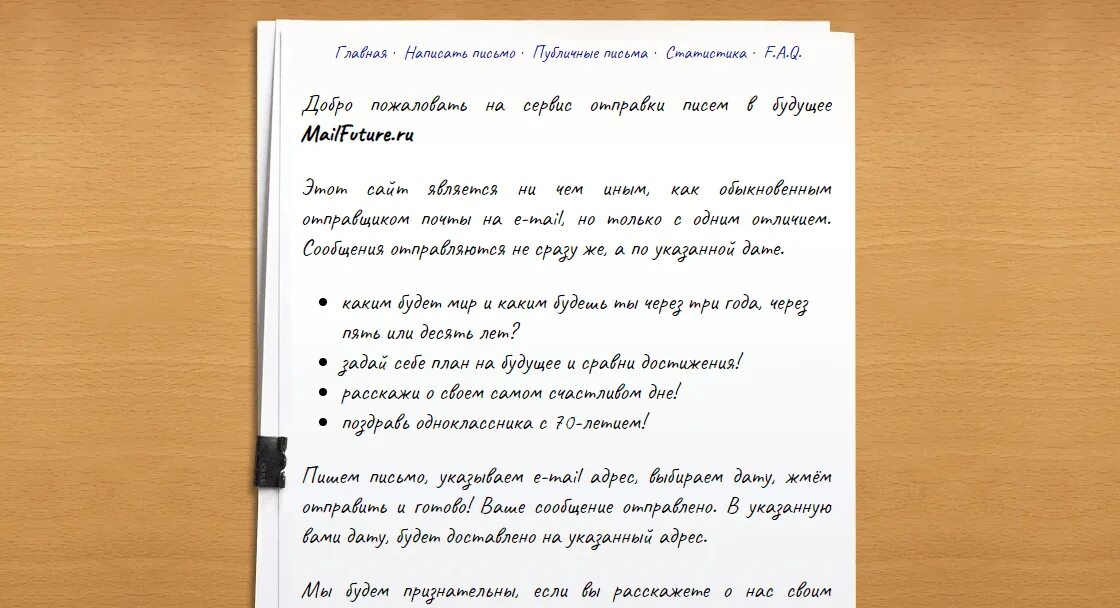 Главная · Написать письмо · Публичные письма · Статистика · F.A.Q.
Добро пожаловать на сервис отправки писем в будущее
MailFuture.ru
Этот сайт является ни чем иным, как обыкновенным
отправщиком почты на e-mail, но только с одним отличием.
Сообщения отправляются не сразу же, а по указанной дате.
• каким будет мир и каким будешь ты через три года, через
пять или десять лет?
• задай себе план на будущее и сравни достижения!
• расскажи о своем самом счастливом дне!
• поздравь одноклассника с 70-летием!
Пишем письмо, указываем e-mail адрес, выбираем дату, жмём
отправить и готово! Ваше сообщение отправлено. В указанную
вами дату, будет доставлено на указанный адрес.
Мы будем признательны, если вы расскажете о нас своим